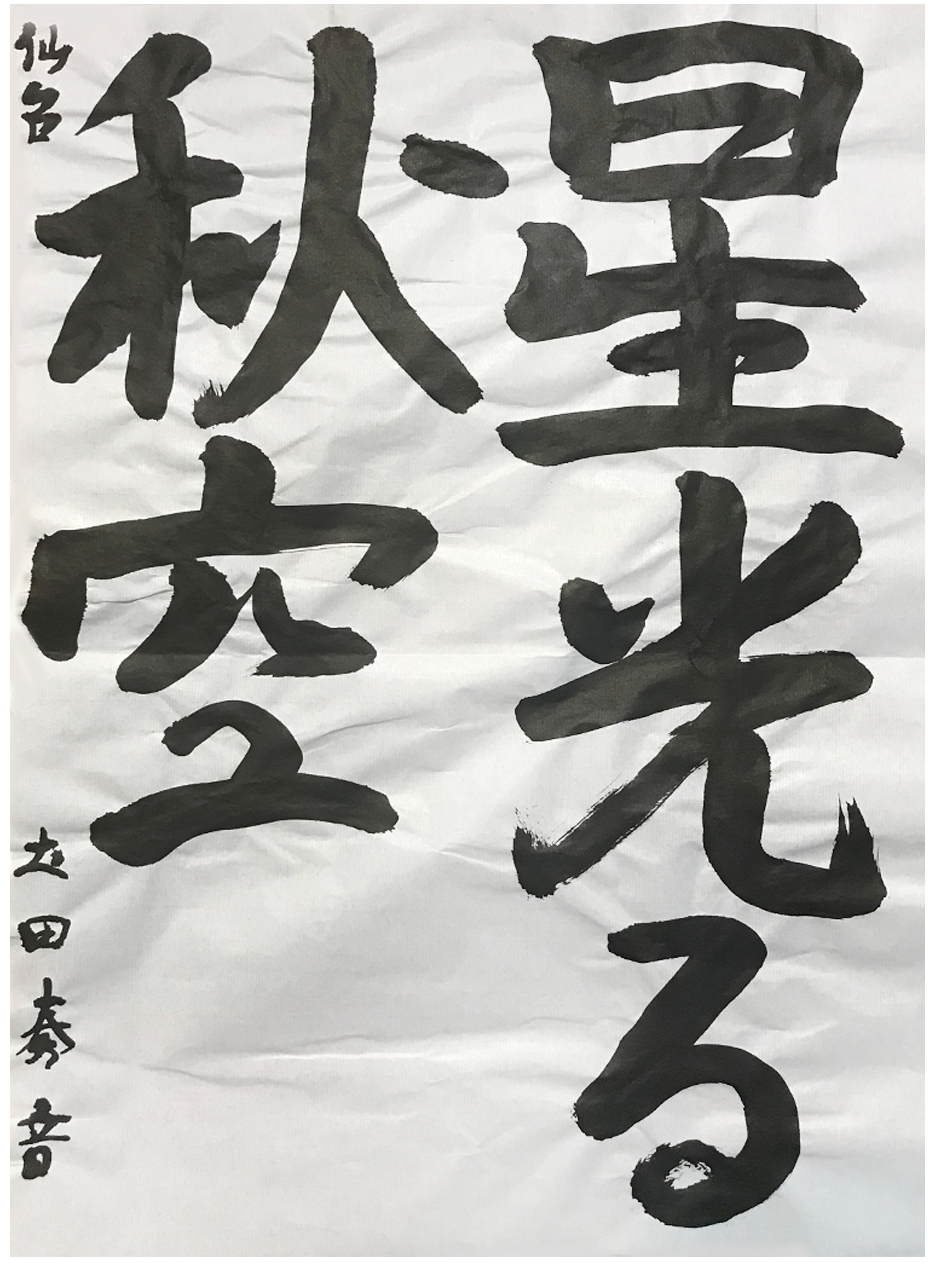 星光る
秋空
仙台 庄田奏音